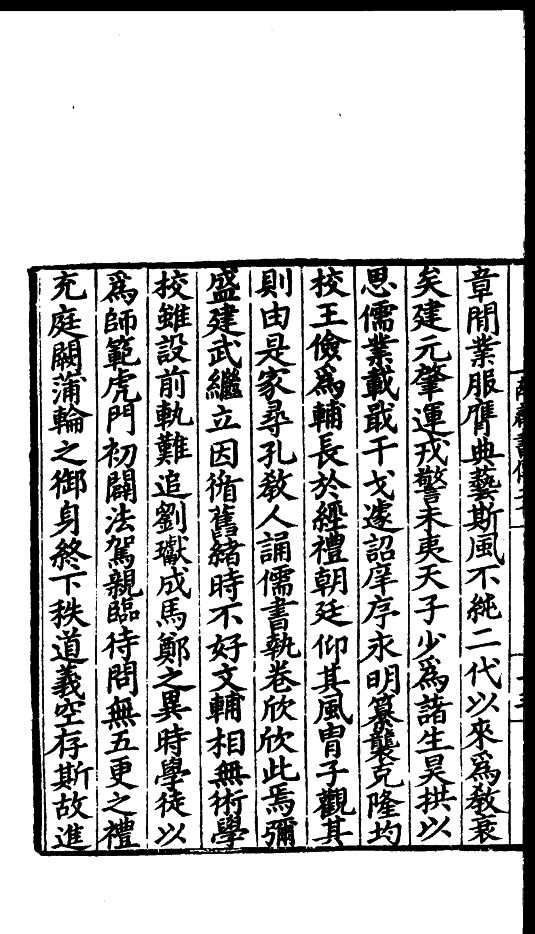 章閒業服膺典藝斯風不純二代以來為教衰
矣建元肇運戎警未夷天子少為諸生昊拱以
思儒業載戢干戈遽詔庠序永明纂襲克隆均
校王儉為輔長於經禮朝廷仰其風胄子觀其
則由是家尋孔教人誦儒書執卷欣欣此焉彌
盛建武繼立因循舊緒時不好文輔相無術學
校雖設前軌難追劉瓛成馬鄭之異時學徒以
為師範虎門初闢法駕親臨待問無五更之禮
充庭闕蒲輪之御身終下秩道義空存斯故進